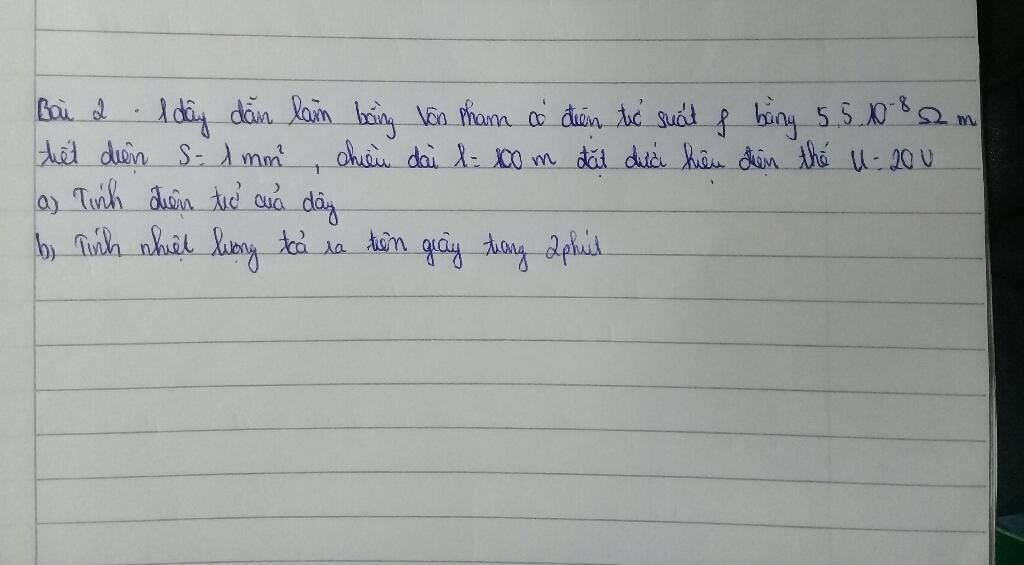 Bài 2 . 1 dây dẫn làm bằng Vôn pham có điện trở suất ρ bằng 5,5.10⁻⁸ Ω m
tiết diện S = 1 mm², chiều dài l = 100 m đặt dưới hiệu điện thế U = 20 V
a) Tính điện trở của dây
b) Tính nhiệt lượng toả ra trên giây trong 2 phút